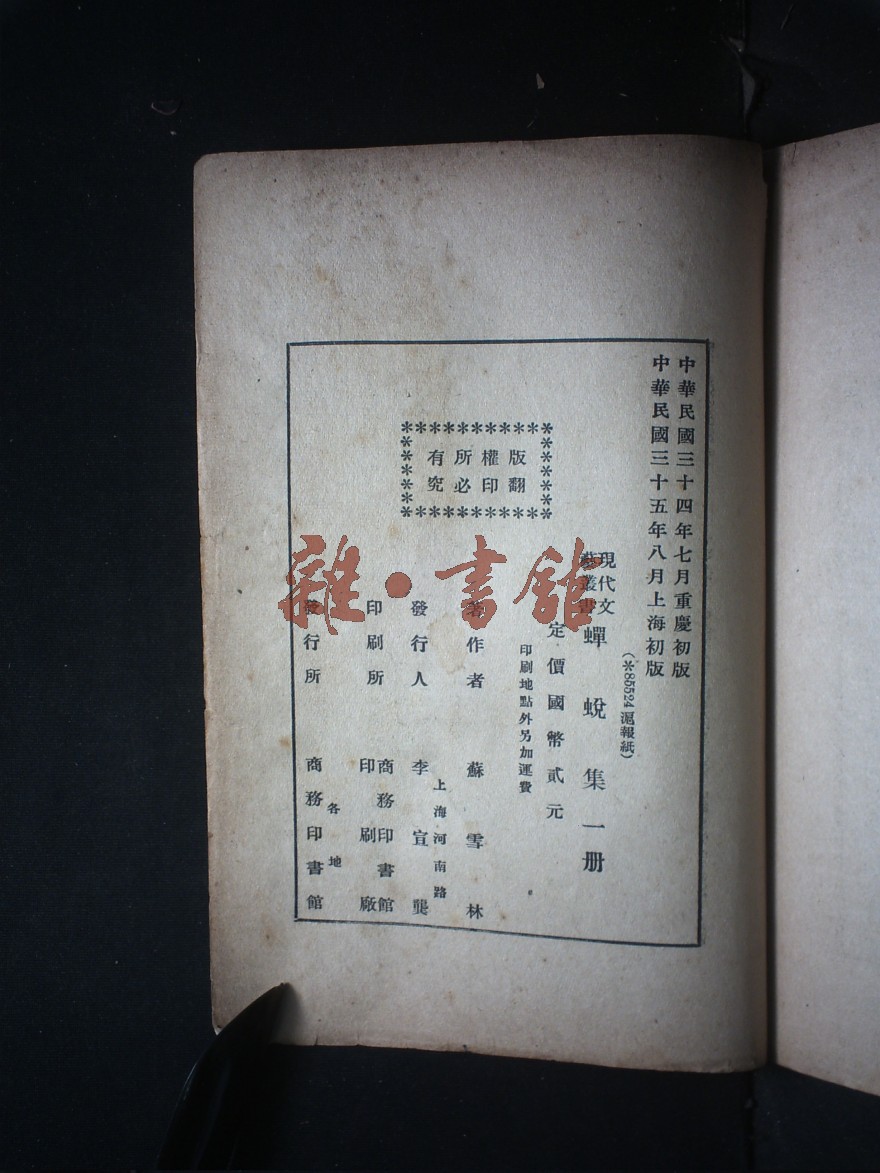 中華民國三十四年七月重慶初版
中華民國三十五年八月上海初版
(*85524滬報紙)
現代文
藝叢書
蟬蛻集一册
定價國幣貳元
印刷地點外另加運費
版權所有
翻印必究
著作者 蘇雪林
上海河南路
發行人 李宣龔
印刷所 商務印書館
印刷廠
各地
發行所 商務印書館
雜·書館